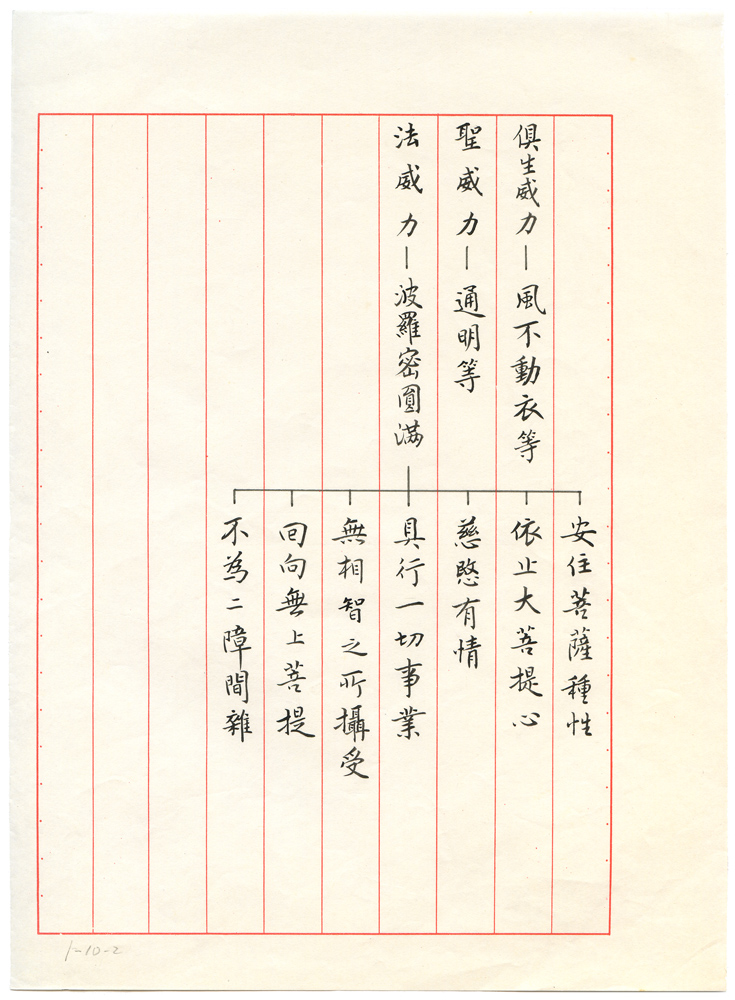 俱生威力—風不動衣等
聖威力—通明等
法威力—波羅密圓滿
安住菩薩種性
依止大菩提心
慈愍有情
具行一切事業
無相智之所攝受
回向無上菩提
不為二障間雜
1-10-2